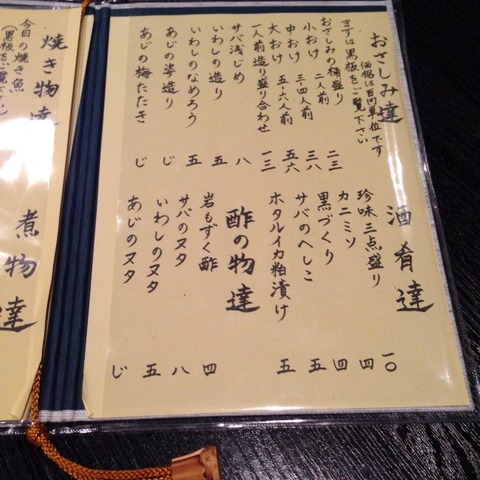 おさしみ達
価格は百円単位です
まずは黒板をご覧下さい
おさしみの桶盛り
小おけ 二人前 二三
中おけ 三・四人前 三八
大おけ 五・六人前 五六
一人前造り盛り合わせ 一三
サバ浅じめ 八
いわしの造り 五
いわしのなめろう 五
あじの姿造り じ
あじの梅たたき じ
酒肴達
珍味三点盛り 一〇
カニミソ 四
黒づくり 四
サバのへしこ 五
ホタルイカ粕漬け 五
酢の物達
岩もずく酢 四
サバのヌタ 八
いわしのヌタ 五
あじのヌタ じ
焼き物達
今日の焼き魚
(黒板をご覧下さい)
煮物達